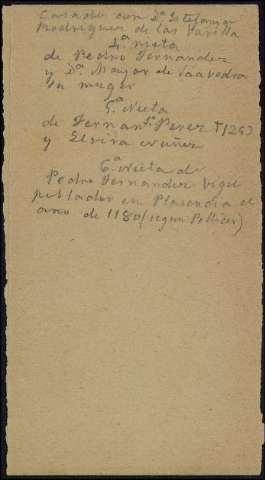 Casado con Dª Estefania
Rodriguez de las Varillas
4ª nieta
de Pedro Fernandez
y Dª Mayor de Saavedra
su muger
5ª Nieta
de Fernan Perez † 1263
y Elvira Nuñez
6ª Nieta de
Pedro Fernandez Vigil
poblador en Plasencia el
año de 1180 (segun Pellicer)